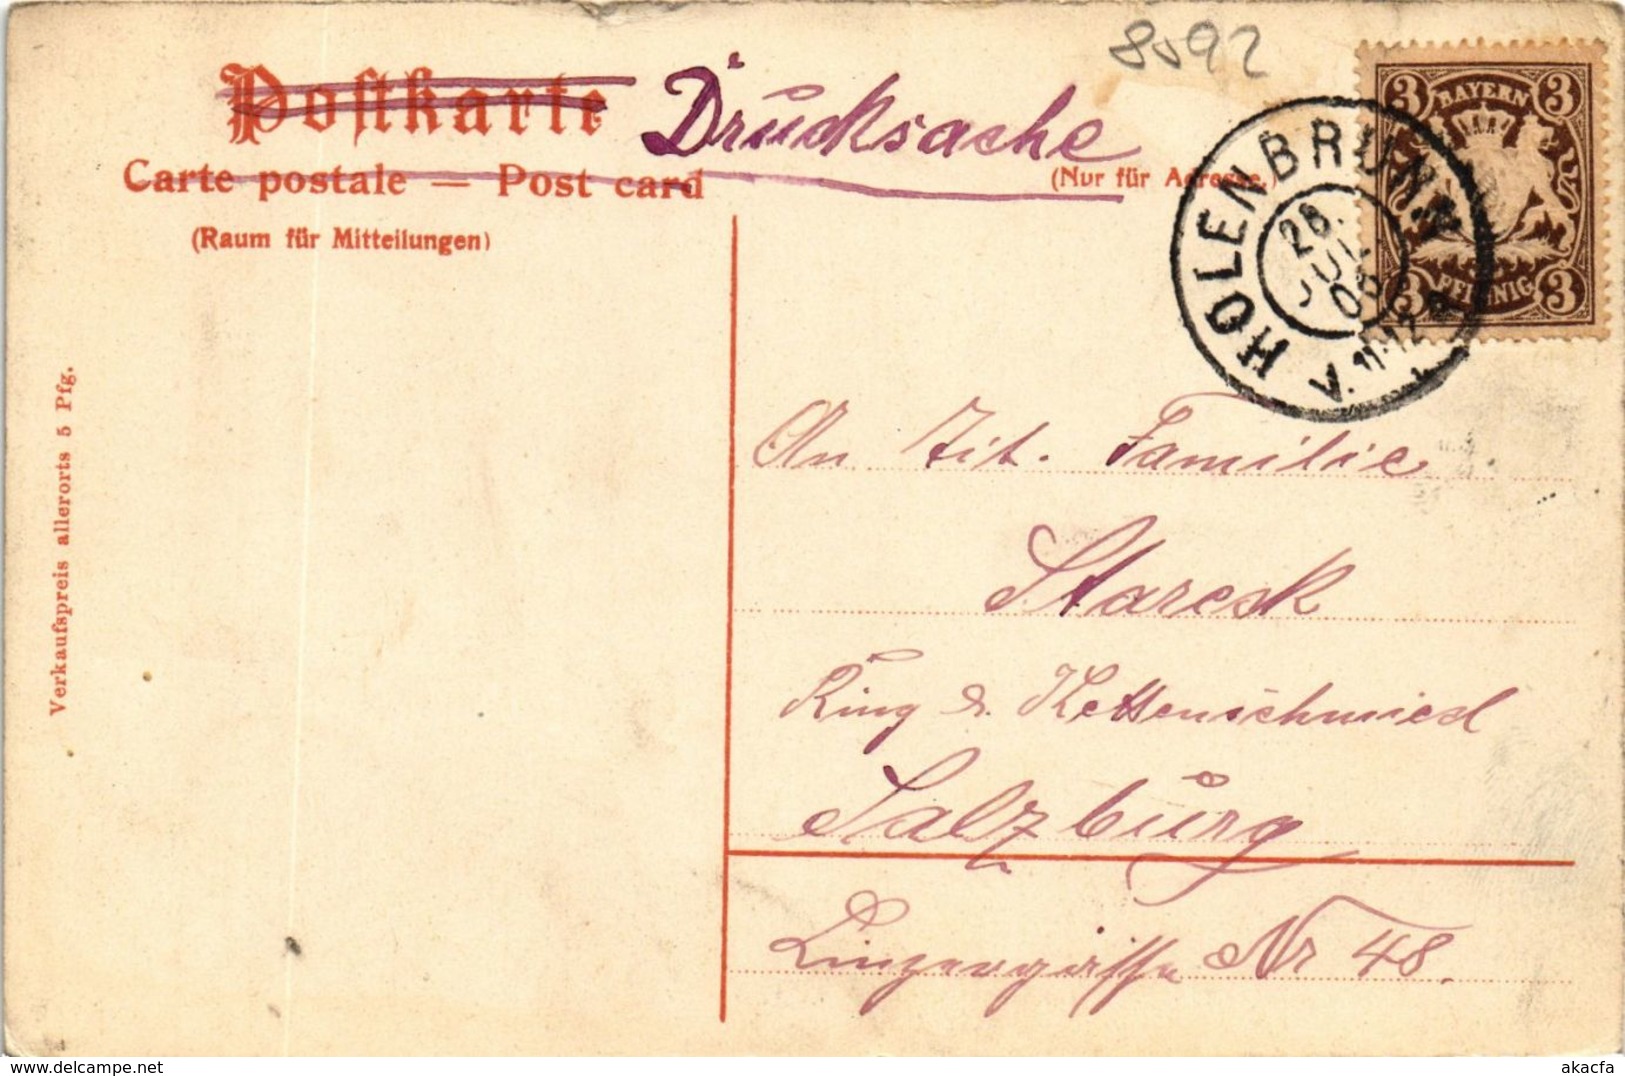 8592
Postkarte Drucksache
Carte postale — Post card
(Nur für Adresse.)
(Raum für Mitteilungen)
3 BAYERN 3
3 PFENNIG 3
HOLENBRUNN
28.
JUL
V. 11-12
Verkaufspreis allerorts 5 Pfg.
An Tit. Familie
Starcsk
Ring & Kettenschmied
Salzburg
Linzergasse Nr 48.
akacfa